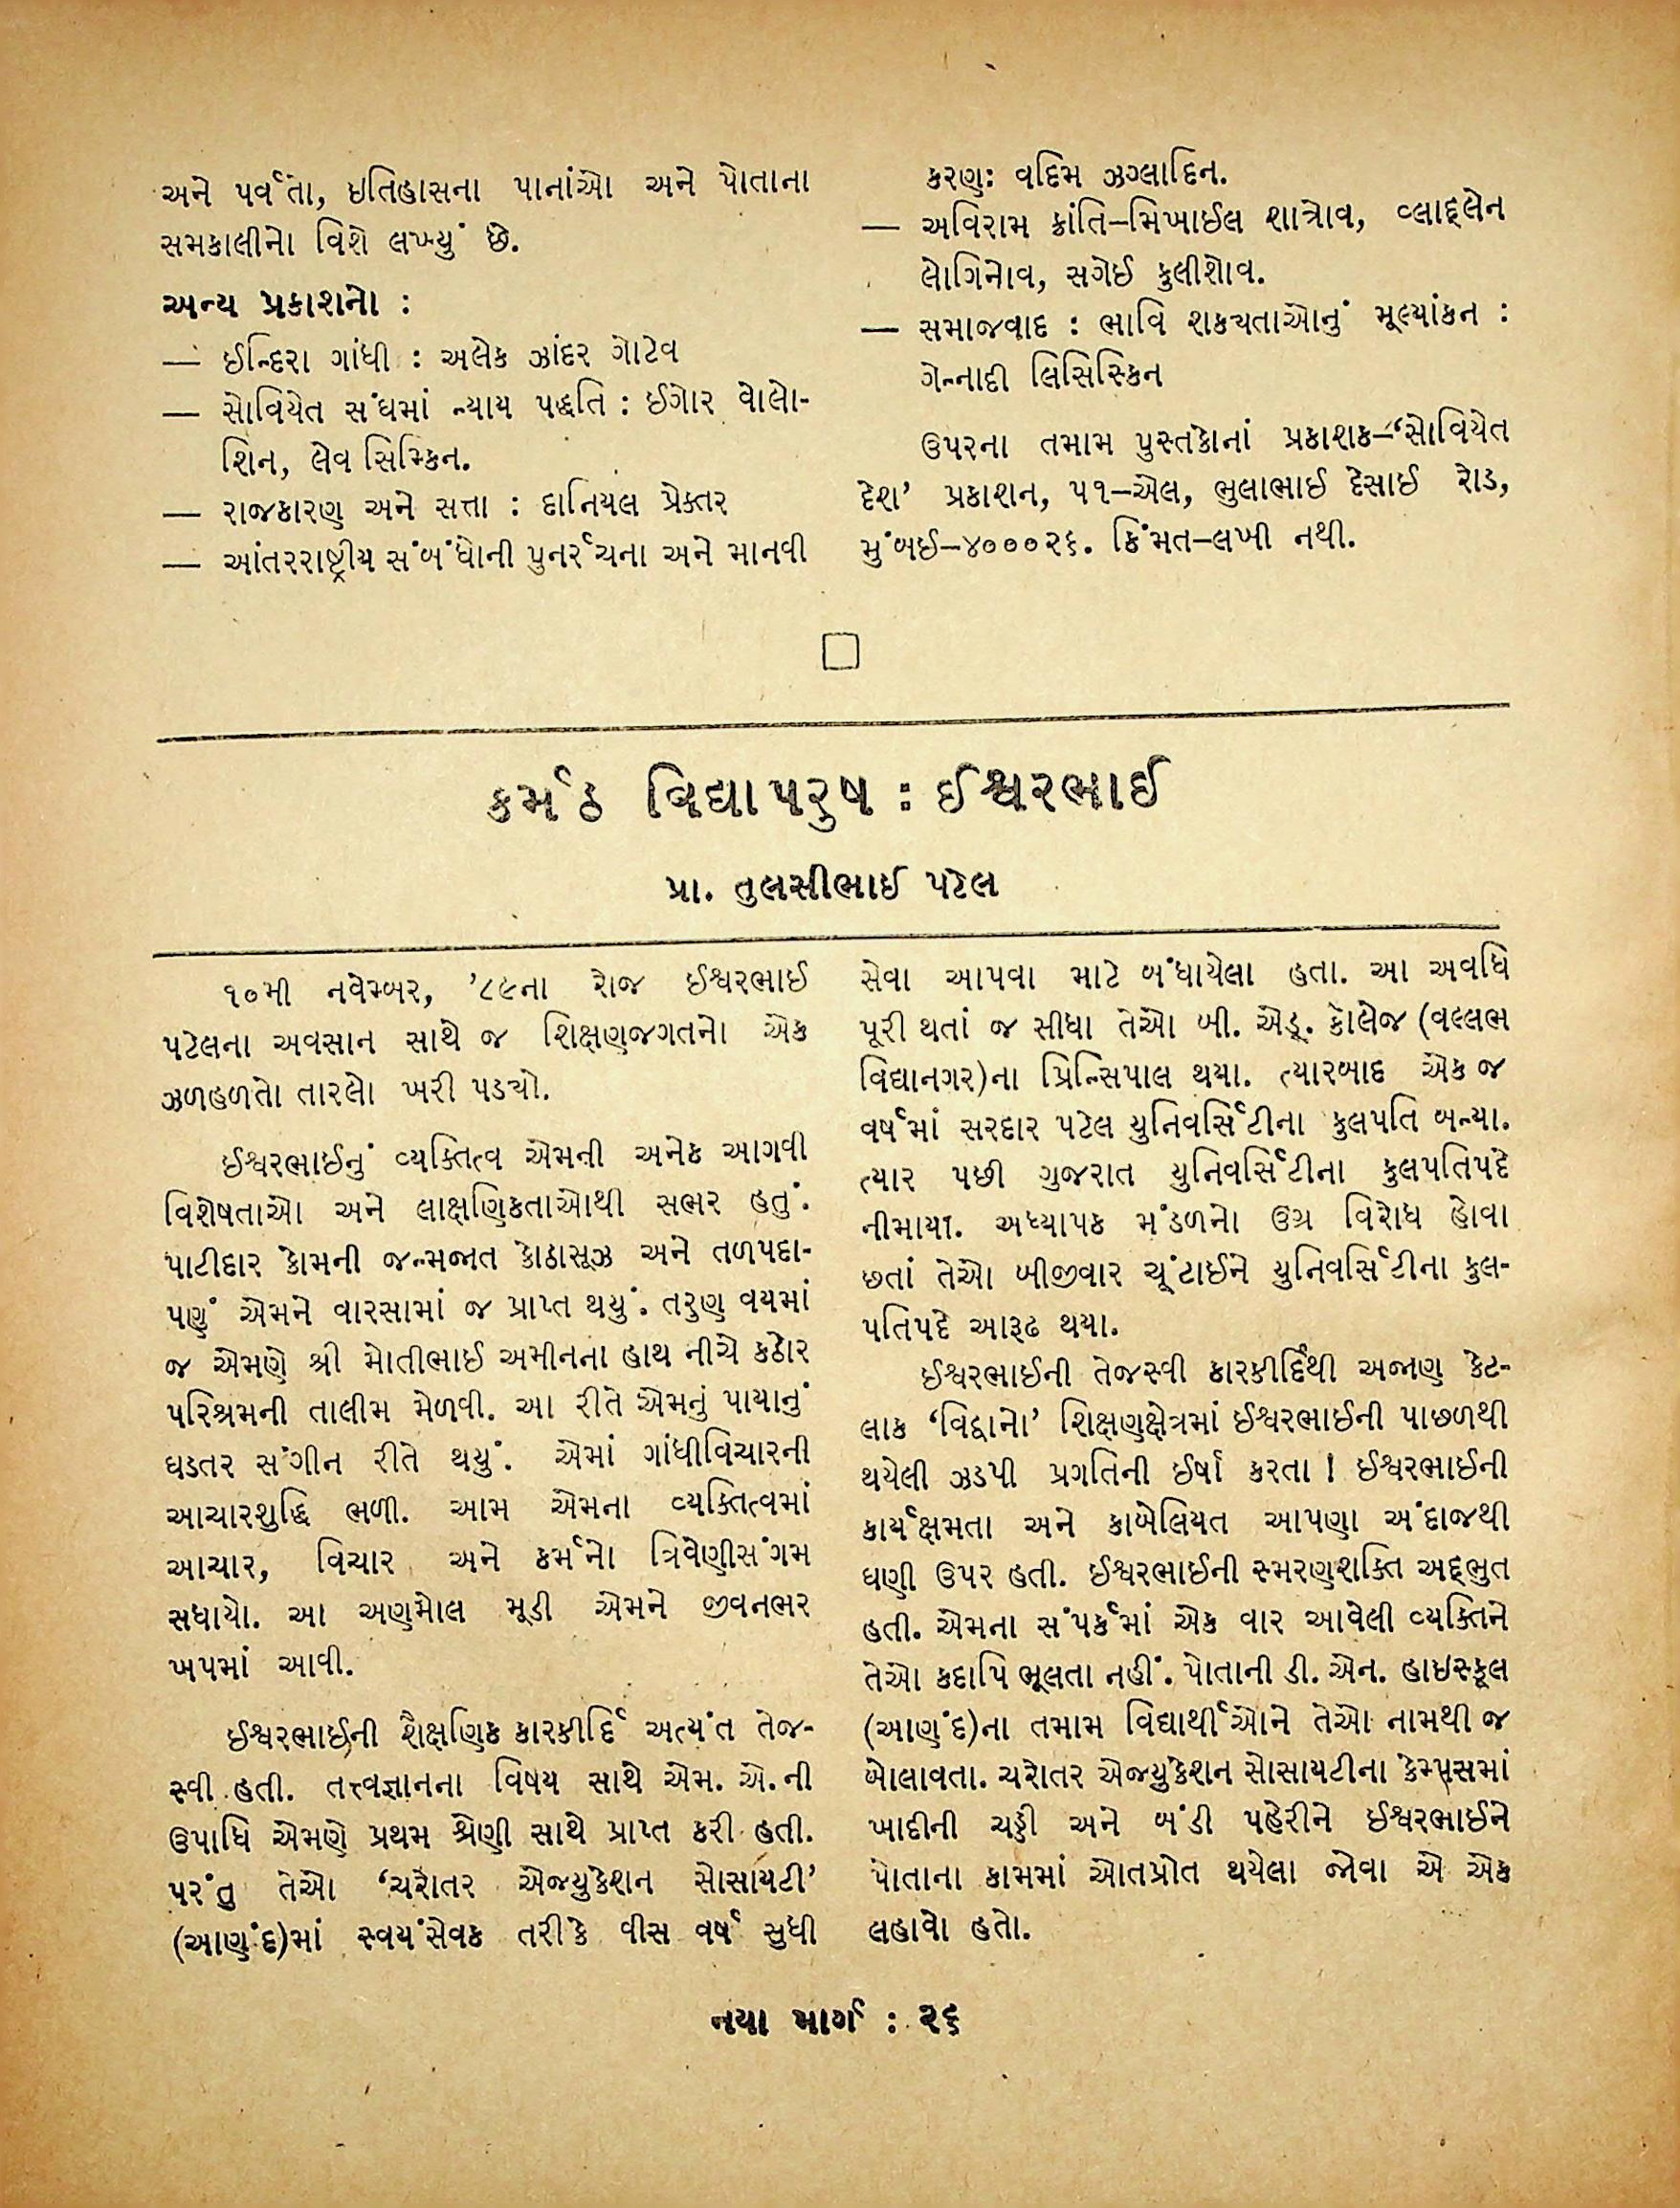 અને પર્વતો, ઇતિહાસના પાનાંઓ અને પોતાના
સમકાલીનો વિશે લખ્યું છે.
અન્ય પ્રકાશનો :
— ઈન્દિરા ગાંધી : અલેક ઝાંદર ગોટેવ
— સોવિયેત સંઘમાં ન્યાય પદ્ધતિ : ઈગોર વોલો-
શિન, લેવ સિમ્કિન.
— રાજકારણ અને સત્તા : દાનિયલ પ્રેક્તર
— આંતરરાષ્ટ્રીય સંબંધોની પુનર્રચના અને માનવી
કરણ: વદિમ ઝગ્લાદિન.
— અવિરામ ક્રાંતિ–મિખાઈલ શાત્રોવ, વ્લાદ્લેન
લોગિનોવ, સગેઈ કુલીશોવ.
— સમાજવાદ : ભાવિ શકયતાઓનું મૂલ્યાંકન :
ગેન્નાદી લિસિસ્કિન
ઉપરના તમામ પુસ્તકોનાં પ્રકાશક–‘સોવિયેત
દેશ’ પ્રકાશન, ૫૧–એલ, ભુલાભાઈ દેસાઈ રોડ,
મુંબઈ–૪૦૦૦૨૬. કિંમત–લખી નથી.
કર્મઠ વિદ્યાપરુષ : ઈશ્વરભાઈ
પ્રા. તુલસીભાઈ પટેલ
૧૦મી નવેમ્બર, ’૮૯ના રોજ ઈશ્વરભાઈ
પટેલના અવસાન સાથે જ શિક્ષણજગતનો એક
ઝળહળતો તારલો ખરી પડયો.
ઈશ્વરભાઈનું વ્યક્તિત્વ એમની અનેક આગવી
વિશેષતાઓ અને લાક્ષણિકતાઓથી સભર હતું.
પાટીદાર કોમની જન્મજાત કોઠાસૂઝ અને તળપદા-
પણું એમને વારસામાં જ પ્રાપ્ત થયું. તરુણ વયમાં
જ એમણે શ્રી મોતીભાઈ અમીનના હાથ નીચે કઠોર
પરિશ્રમની તાલીમ મેળવી. આ રીતે એમનું પાયાનું
ઘડતર સંગીન રીતે થયું. એમાં ગાંધીવિચારની
આચારશુદ્ધિ ભળી. આમ એમના વ્યક્તિત્વમાં
આચાર, વિચાર અને કર્મનો ત્રિવેણીસંગમ
સધાયો. આ અણમોલ મૂડી એમને જીવનભર
ખપમાં આવી.
ઈશ્વરભાઈની શૈક્ષણિક કારકીર્દિ અત્યંત તેજ-
સ્વી હતી. તત્ત્વજ્ઞાનના વિષય સાથે એમ. એ.ની
ઉપાધિ એમણે પ્રથમ શ્રેણી સાથે પ્રાપ્ત કરી હતી.
પરંતુ તેઓ ‘ચરોતર એજ્યુકેશન સોસાયટી’
(આણંદ)માં સ્વયંસેવક તરીકે વીસ વર્ષ સુધી
સેવા આપવા માટે બંધાયેલા હતા. આ અવધિ
પૂરી થતાં જ સીધા તેઓ બી. એડ્. કોલેજ (વલ્લભ
વિદ્યાનગર)ના પ્રિન્સિપાલ થયા. ત્યારબાદ એક જ
વર્ષમાં સરદાર પટેલ યુનિવર્સિટીના કુલપતિ બન્યા.
ત્યાર પછી ગુજરાત યુનિવર્સિટીના કુલપતિપદે
નીમાયા. અધ્યાપક મંડળનો ઉગ્ર વિરોધ હોવા
છતાં તેઓ બીજીવાર ચૂંટાઈને યુનિવર્સિટીના કુલ-
પતિપદે આરૂઢ થયા.
ઈશ્વરભાઈની તેજસ્વી કારકીર્દિથી અજાણ કેટ-
લાક ‘વિદ્વાનો’ શિક્ષણક્ષેત્રમાં ઈશ્વરભાઈની પાછળથી
થયેલી ઝડપી પ્રગતિની ઈર્ષા કરતા ! ઈશ્વરભાઈની
કાર્યક્ષમતા અને કાબેલિયત આપણા અંદાજથી
ઘણી ઉપર હતી. ઈશ્વરભાઈની સ્મરણશક્તિ અદ્ભુત
હતી. એમના સંપર્કમાં એક વાર આવેલી વ્યક્તિને
તેઓ કદાપિ ભૂલતા નહીં. પોતાની ડી. એન. હાઇસ્કૂલ
(આણંદ)ના તમામ વિદ્યાર્થીઓને તેઓ નામથી જ
બોલાવતા. ચરોતર એજ્યુકેશન સોસાયટીના કેમ્પસમાં
ખાદીની ચડ્ડી અને બંડી પહેરીને ઈશ્વરભાઈને
પોતાના કામમાં ઓતપ્રોત થયેલા જોવા એ એક
લહાવો હતો.
નયા માર્ગ : ૨૬